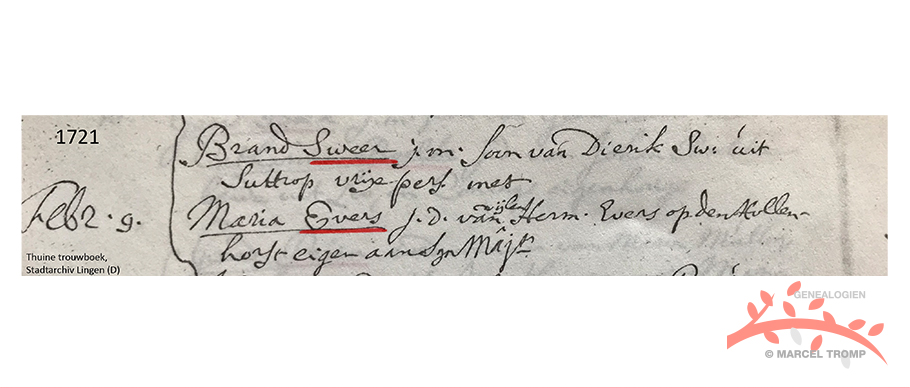 1721
Brand Sweer j.m. soon van Dierik Sw: uit
Suttrop vrije pers. met
Febr. 9.
Maria Evers j.D. van wijlen Herm. Evers op den Hollen-
horst eigen aan Syn Majt.
Thuine trouwboek,
Stadtarchiv Lingen (D)
GENEALOGIEN
© MARCEL TROMP